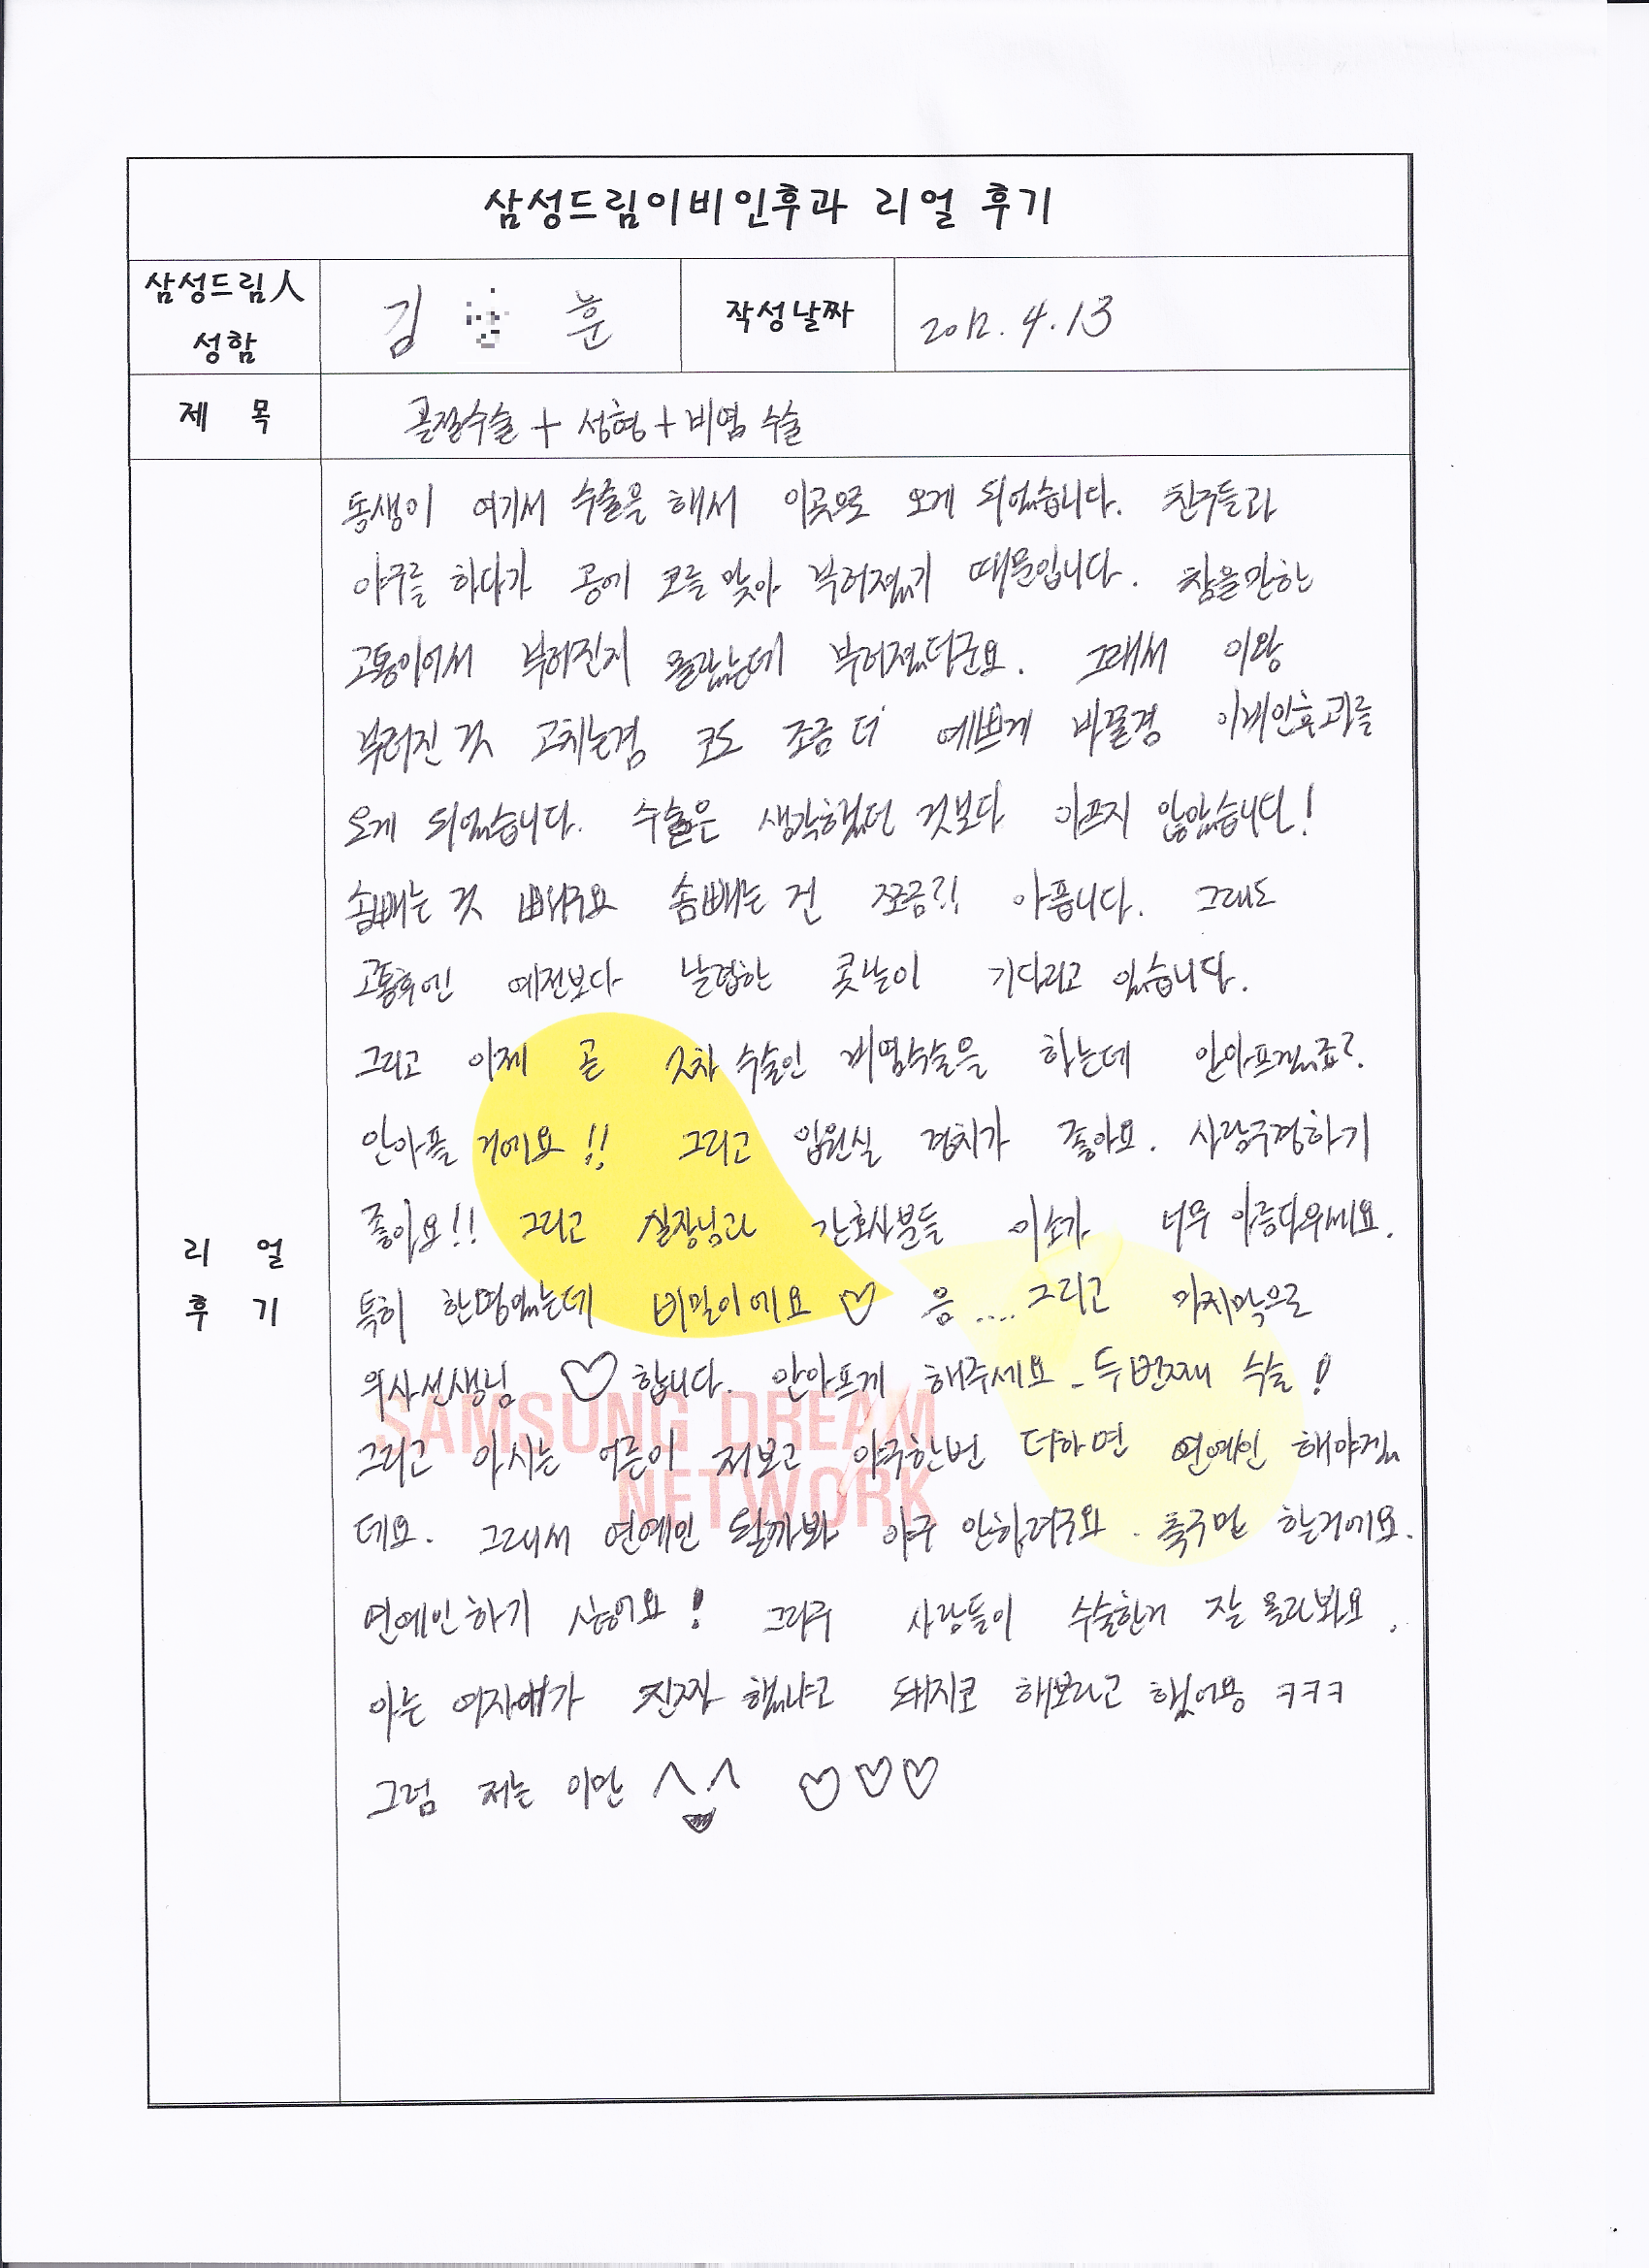 삼성드림이비인후과 리얼 후기
삼성드림人
성함
김 훈
작성날짜
2012. 4. 13
제 목
골절수술 + 성형 + 비염 수술
리 얼
후 기
동생이 여기서 수술을 해서 이곳으로 오게 되었습니다. 친구들과
야구를 하다가 공에 코를 맞아 부러졌기 때문입니다. 참을만한
고통이어서 부러진지 몰랐는데 부러졌더군요. 그래서 이왕
부러진 것 고치는겸 코도 조금 더 예쁘게 바꿀겸 이비인후과를
오게 되었습니다. 수술은 생각했던 것보다 아프지 않았습니다!
솜빼는 것 빼구요 솜빼는 건 쪼금?! 아픕니다. 그래도
고통후엔 예전보다 날렵한 콧날이 기다리고 있습니다.
그리고 이제 곧 2차 수술인 비염수술을 하는데 안아프겠죠?
안아플 거에요!! 그리고 입원실 경치가 좋아요. 사람구경하기
좋아요!! 그리고 실장님과 간호사분들 미소가 너무 아름다우세요.
특히 한명있는데 비밀이에요 ♡ 음.... 그리고 마지막으로
의사선생님 ♡합니다. 안아프게 해주세요 - 두번째 수술!
그리고 아시는 어른이 저보고 야구한번 더하면 연예인 해야겠
데요. 그래서 연예인 될까봐 야구 안하려구요. 축구만 할거에요.
연예인하기 싫어요! 그리구 사람들이 수술한거 잘 몰라봐요.
아는 여자애가 진짜 했냐고 돼지코 해보라고 했어용 ㅋㅋㅋ
그럼 저는 이만 ^.^ ♡♡♡
SAMSUNG DREAM
NETWORK